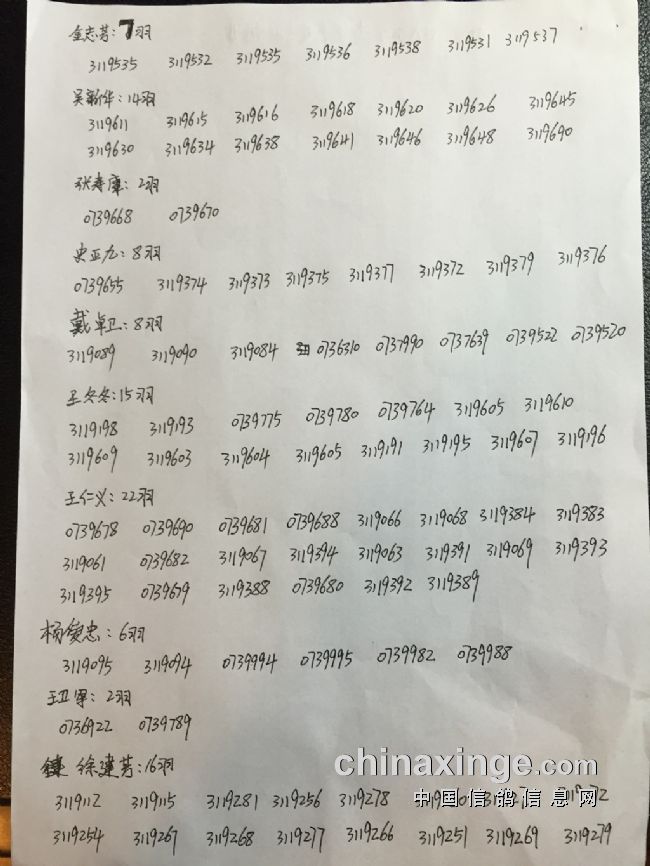 金志芳：7羽
3119535 3119532 3119535 3119536 3119538 3119531 3119537
吴新华：14羽
3119611 3119615 3119616 3119618 3119620 3119626 3119645
3119630 3119634 3119638 3119641 3119646 3119648 3119690
张寿康：2羽
0739668 0739670
史亚九：8羽
0739655 3119374 3119373 3119375 3119377 3119372 3119379 3119376
戴卓卫：8羽
3119089 3119090 3119084 0736310 0737990 0737639 0739522 0739520
王冬冬：15羽
3119198 3119193 0739775 0739780 0739764 3119605 3119610
3119609 3119603 3119604 3119605 3119191 3119195 3119607 3119196
王仁义：22羽
0739678 0739690 0739681 0739688 3119066 3119068 3119384 3119383
3119061 0739682 3119067 3119394 3119063 3119391 3119069 3119393
3119395 0739679 3119388 0739680 3119392 3119389
杨俊忠：6羽
3119095 3119094 0739994 0739995 0739982 0739988
王卫军：2羽
0736922 0739789
徐建芳：16羽
3119112 3119115 3119281 3119256 3119278
3119254 3119267 3119268 3119277 3119266 3119251 3119269 3119279
chinaxinge.com
中国信鸽信息网